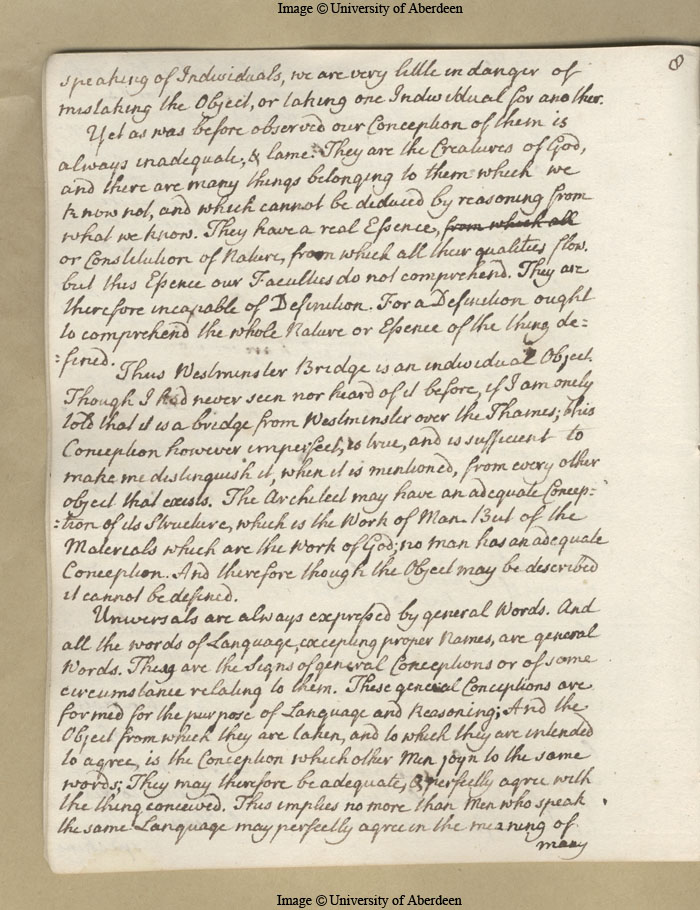 Image © University of Aberdeen
8
speaking of Individuals, we are very little in danger of
mistaking the Object, or taking one Individual for another.
Yet as was before observed our Conception of them is
always inadequate, & lame. They are the Creatures of God,
and there are many things belonging to them which we
know not, and which cannot be deduced by reasoning from
what we know. They have a real Essence, from which all
or Constitution of Nature, from which all their qualities flow.
but this Essence our Faculties do not comprehend. They are
therefore incapable of Definition. For a Definition ought
to comprehend the whole Nature or Essence of the thing de=
=fined.
Thus Westminster Bridge is an individual Object.
Though I had never seen nor heard of it before, if I am onely
told that it is a bridge from Westminster over the Thames; this
Conception however imperfect, is true, and is sufficient to
make me distinguish it, when it is mentioned, from every other
object that exists. The Architect may have an adequate Concep=
=tion of its Structure, which is the Work of Man. But of the
Materials which are the work of God; no man has an adequate
Conception. And therefore though the Object may be described
it cannot be defined.
Universals are always expressed by general Words. And
all the words of Language, excepting proper Names, are general
Words. They are the Signs of general Conceptions or of some
circumstance relating to them. These general Conceptions are
formed for the purpose of Language and Reasoning; And the
Object from which they are taken, and to which they are intended
to agree, is the Conception which other Men joyn to the same
words; They may therefore be adequate, & perfectly agree with
the thing conceived. This implies no more than Men who speak
the same Language may perfectly agree in the meaning of
many
Image © University of Aberdeen